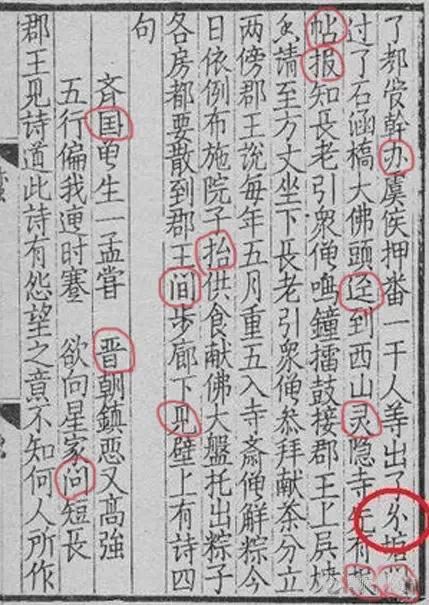 了都管幹办虞侯押番一干人等出了塘
过了石涵橋大佛頭迳到西山灵隐寺先有报
帖报知長老引眾僧鳴鐘擂鼓接郡王上殿燒
香請至方丈坐下長老引眾僧参拜献茶分立
两傍郡王說每年五月重五入寺斋僧解粽今
日依例布施院子抬供食献佛大盤托出粽子
各房都要散到郡王间步廊下见壁上有詩四
句
斉国曽生一孟嘗 晋朝鎮惡又高強
五行偏我遭时蹇 欲向星家问短長
郡王見詩道此詩有怨望之意不知何人所作